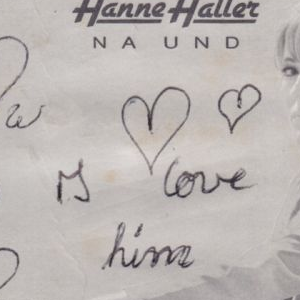 Hanne Haller
NA UND
I love
him